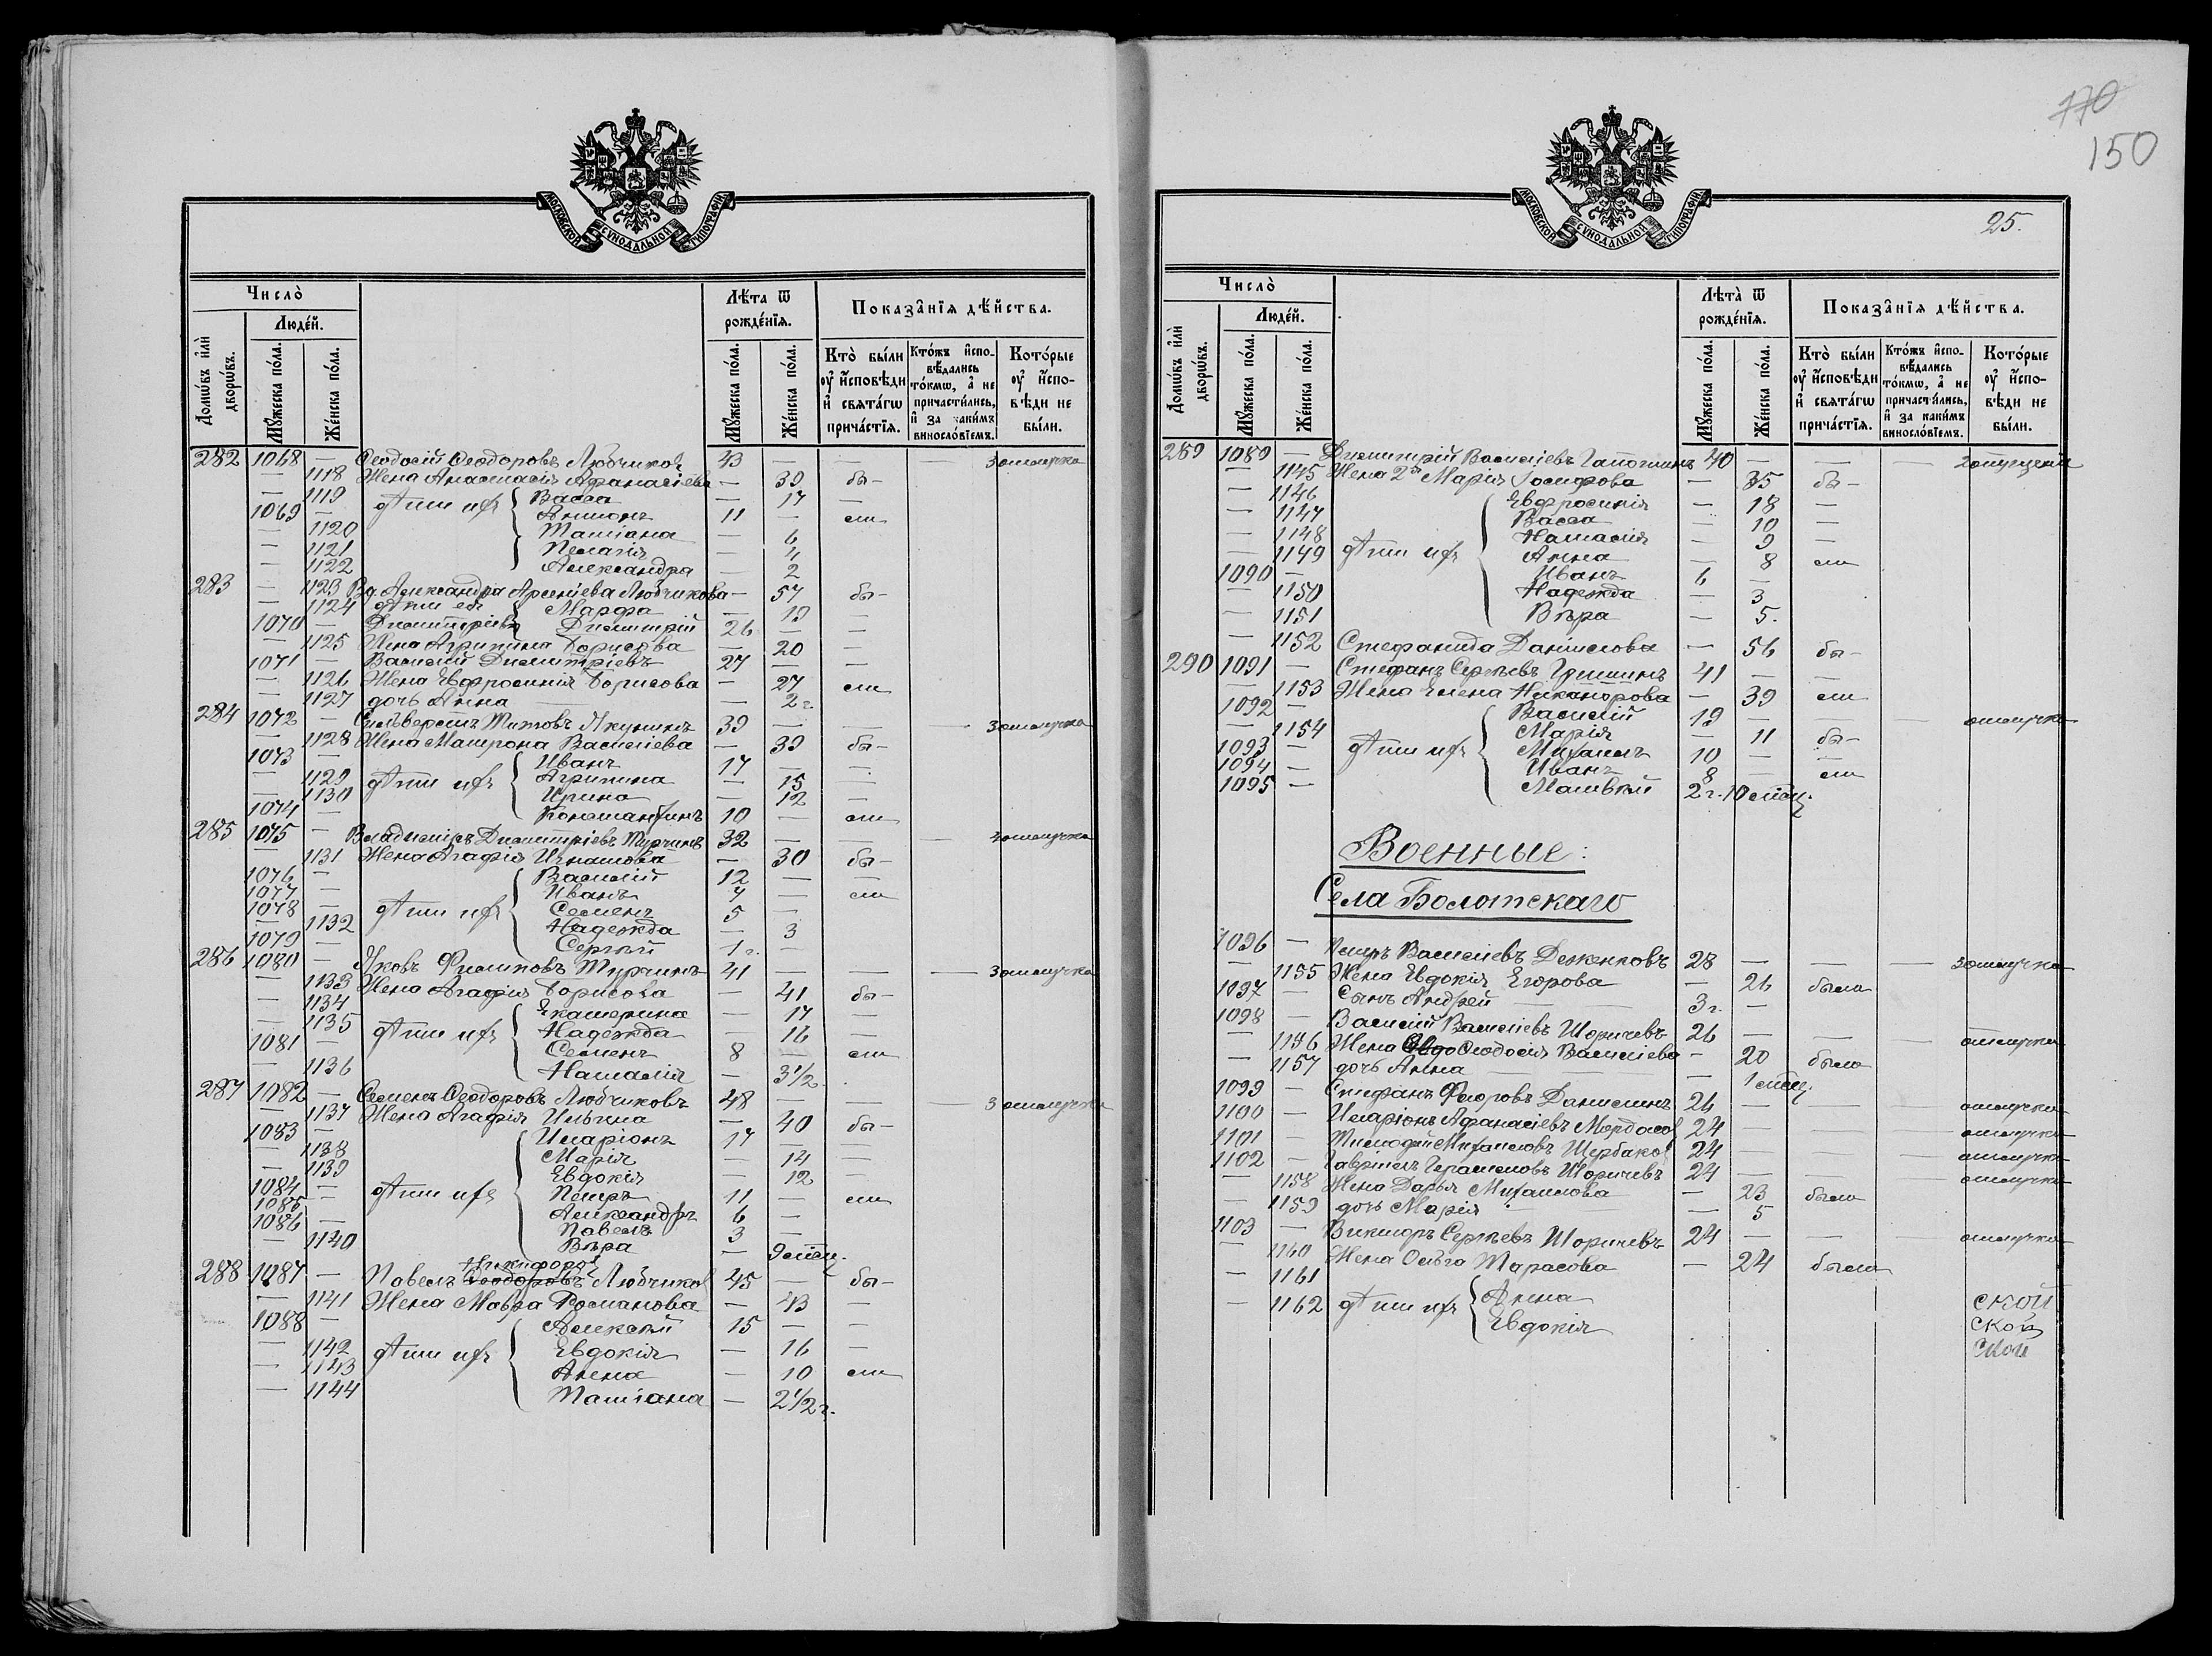 МОСКОВСКОЙ СѴНОДАЛЬНОЙ ТИПОГРАФІИ.
Число̀
Люде́й.
Домѡ́въ и҆лѝ дворѡ́въ.
Мꙋ́жеска по́ла.
Же́нска по́ла.
Лѣ́та ѿ рожде́нїѧ.
Мꙋ́жеска по́ла.
Же́нска по́ла.
Показа̑нїѧ дѣ́йства.
Кто̀ бы́ли ᲂу҆ и҆сповѣди и҆ свѧта́гѡ прича́стїѧ.
Кто́жъ и҆спо-вѣ́дались то́кмѡ, а҆ не причасти́лись, и҆ за каки́мъ винословїемъ.
Кото́рые ᲂу҆ и҆спо-вѣди не бы́ли.
282 1068 — Ѳеодосій Ѳеодоровъ Любчиковъ 43 — — З отлучка
— 1118 Жена Анастасія Аѳанасіева — 39 бы-
— 1119 дѣти ихъ Васса — 17 —
1069 — Антонъ 11 — ли
— 1120 Татіана — 6
— 1121 Пелагія — 4
— 1122 Александра — 2
283 — 1123 Вд. Александра Арсеніева Любчикова — 57 бы-
— 1124 дѣти её Марѳа — 19 —
1070 — Димитріевы Димитрій 26 — —
— 1125 Жена Агрипина Борисова — 20 —
1071 — Василій Димитріевъ 27 — —
— 1126 Жена Евфросинія Борисова — 27 ли
— 1127 дочь Анна — 2 г.
284 1072 — Сильверстъ Титовъ Якунинъ 39 — — — З отлучка
— 1128 Жена Матрона Василіева — 39 бы-
1073 — дѣти ихъ Иванъ 17 — —
— 1129 Агрипина — 15 —
— 1130 Ирина — 12 —
1074 — Константинъ 10 — ли
285 1075 — Владиміръ Димитріевъ Турчинъ 32 — — — З отлучка
— 1131 Жена Агафія Игнатова — 30 бы-
1076 — дѣти ихъ Василій 12 — —
1077 — Иванъ 7 — ли
1078 — Семенъ 5 —
— 1132 Надежда — 3
1079 — Сергѣй 1 г. —
286 1080 — Яковъ Филиповъ Турчинъ 41 — — — З отлучка
— 1133 Жена Агафія Борисова — 41 бы-
— 1134 дѣти ихъ Екатерина — 17 —
— 1135 Надежда — 16 —
1081 — Семенъ 8 — ли
— 1136 Наталія — 3½
287 1082 — Семенъ Ѳеодоровъ Любчиковъ 48 — — — З отлучка
— 1137 Жена Агафія Ильина — 40 бы-
1083 — дѣти ихъ Иларіонъ 17 — —
— 1138 Марія — 14 —
— 1139 Евдокія — 12 —
1084 — Петръ 11 — ли
1085 — Александръ 6 —
1086 — Павелъ 3 —
— 1140 Вѣра — 9 мѣсц.
Никифоровъ
288 1087 — Павелъ Ѳеодоровъ Любчиковъ 45 — бы-
— 1141 Жена Мавра Романова — 43 —
1088 — дѣти ихъ Алексѣй 15 — —
— 1142 Евдокія — 16 —
— 1143 Анна — 10 ли
— 1144 Татіана — 2½ г.
170
150
25.
МОСКОВСКОЙ СѴНОДАЛЬНОЙ ТИПОГРАФІИ.
Число̀
Люде́й.
Домѡ́въ и҆лѝ дворѡ́въ.
Мꙋ́жеска по́ла.
Же́нска по́ла.
Лѣта̀ ѿ рожде́нїѧ.
Мꙋ́жеска по́ла.
Же́нска по́ла.
Показа̑нїѧ дѣ́йства.
Кто̀ бы́ли ᲂу҆ и҆сповѣди и҆ свѧта́гѡ прича́стїѧ.
Кто́жъ и҆спо-вѣ́дались то́кмѡ, а҆ не причасти́лись, и҆ за каки́мъ винословїемъ.
Кото́рые ᲂу҆ и҆спо-вѣди не бы́ли.
289 1089 — Димитрій Василіевъ 40 — — —
— 1145 Жена 2я Марія Іосифова — 35 бы-
— 1146 дѣти ихъ Евфросинія — 18 —
— 1147 Васса — 10 —
— 1148 Наталія — 9 —
— 1149 Анна — 8 ли
1090 — Иванъ 6 —
— 1150 Надежда — 3
— 1151 Вѣра — 5.
— 1152 Стефанида Данилова — 56 бы-
290 1091 — Стефанъ Сергѣевъ Гришинъ 41 — —
— 1153 Жена Елена Никанорова — 39 ли
1092 — дѣти ихъ Василій 19 — — — отлучка
— 1154 Марія — 11 бы-
1093 — Михаилъ 10 — —
1094 — Иванъ 8 — ли
1095 — Матвѣй 2 г. 10 мѣсц.
Военные:
Села Болотскаго
1096 — Петръ Василіевъ Деженковъ 28 — — — З отлучка
— 1155 Жена Евдокія Егорова — 26 была
1097 — Сынъ Андрей 3 г. —
1098 — Василій Василіевъ Шоричевъ 26 — — отлучка
— 1156 Жена Ѳеодосія Василіева — 20 была
— 1157 дочь Анна — 1 мѣсц.
1099 — Стефанъ Ѳедоровъ Данилинъ 26 — — — отлучка
1100 — Иларіонъ Аѳанасіевъ 24 — — отлучка
1101 — Тимоѳей Михаиловъ Щербаков 24 — — — отлучка
1102 — Гавріилъ Герасимовъ Шоричевъ 24 — — отлучка
— 1158 Жена Дарья Михаилова — 23 была
— 1159 дочь Марія — 5
1103 — Викторъ Сергѣевъ Шоричевъ 24 — — отлучка
— 1160 Жена Ольга Тарасова — 24 была
— 1161 дѣти ихъ Анна
— 1162 Евдокія
ской
ской
ской